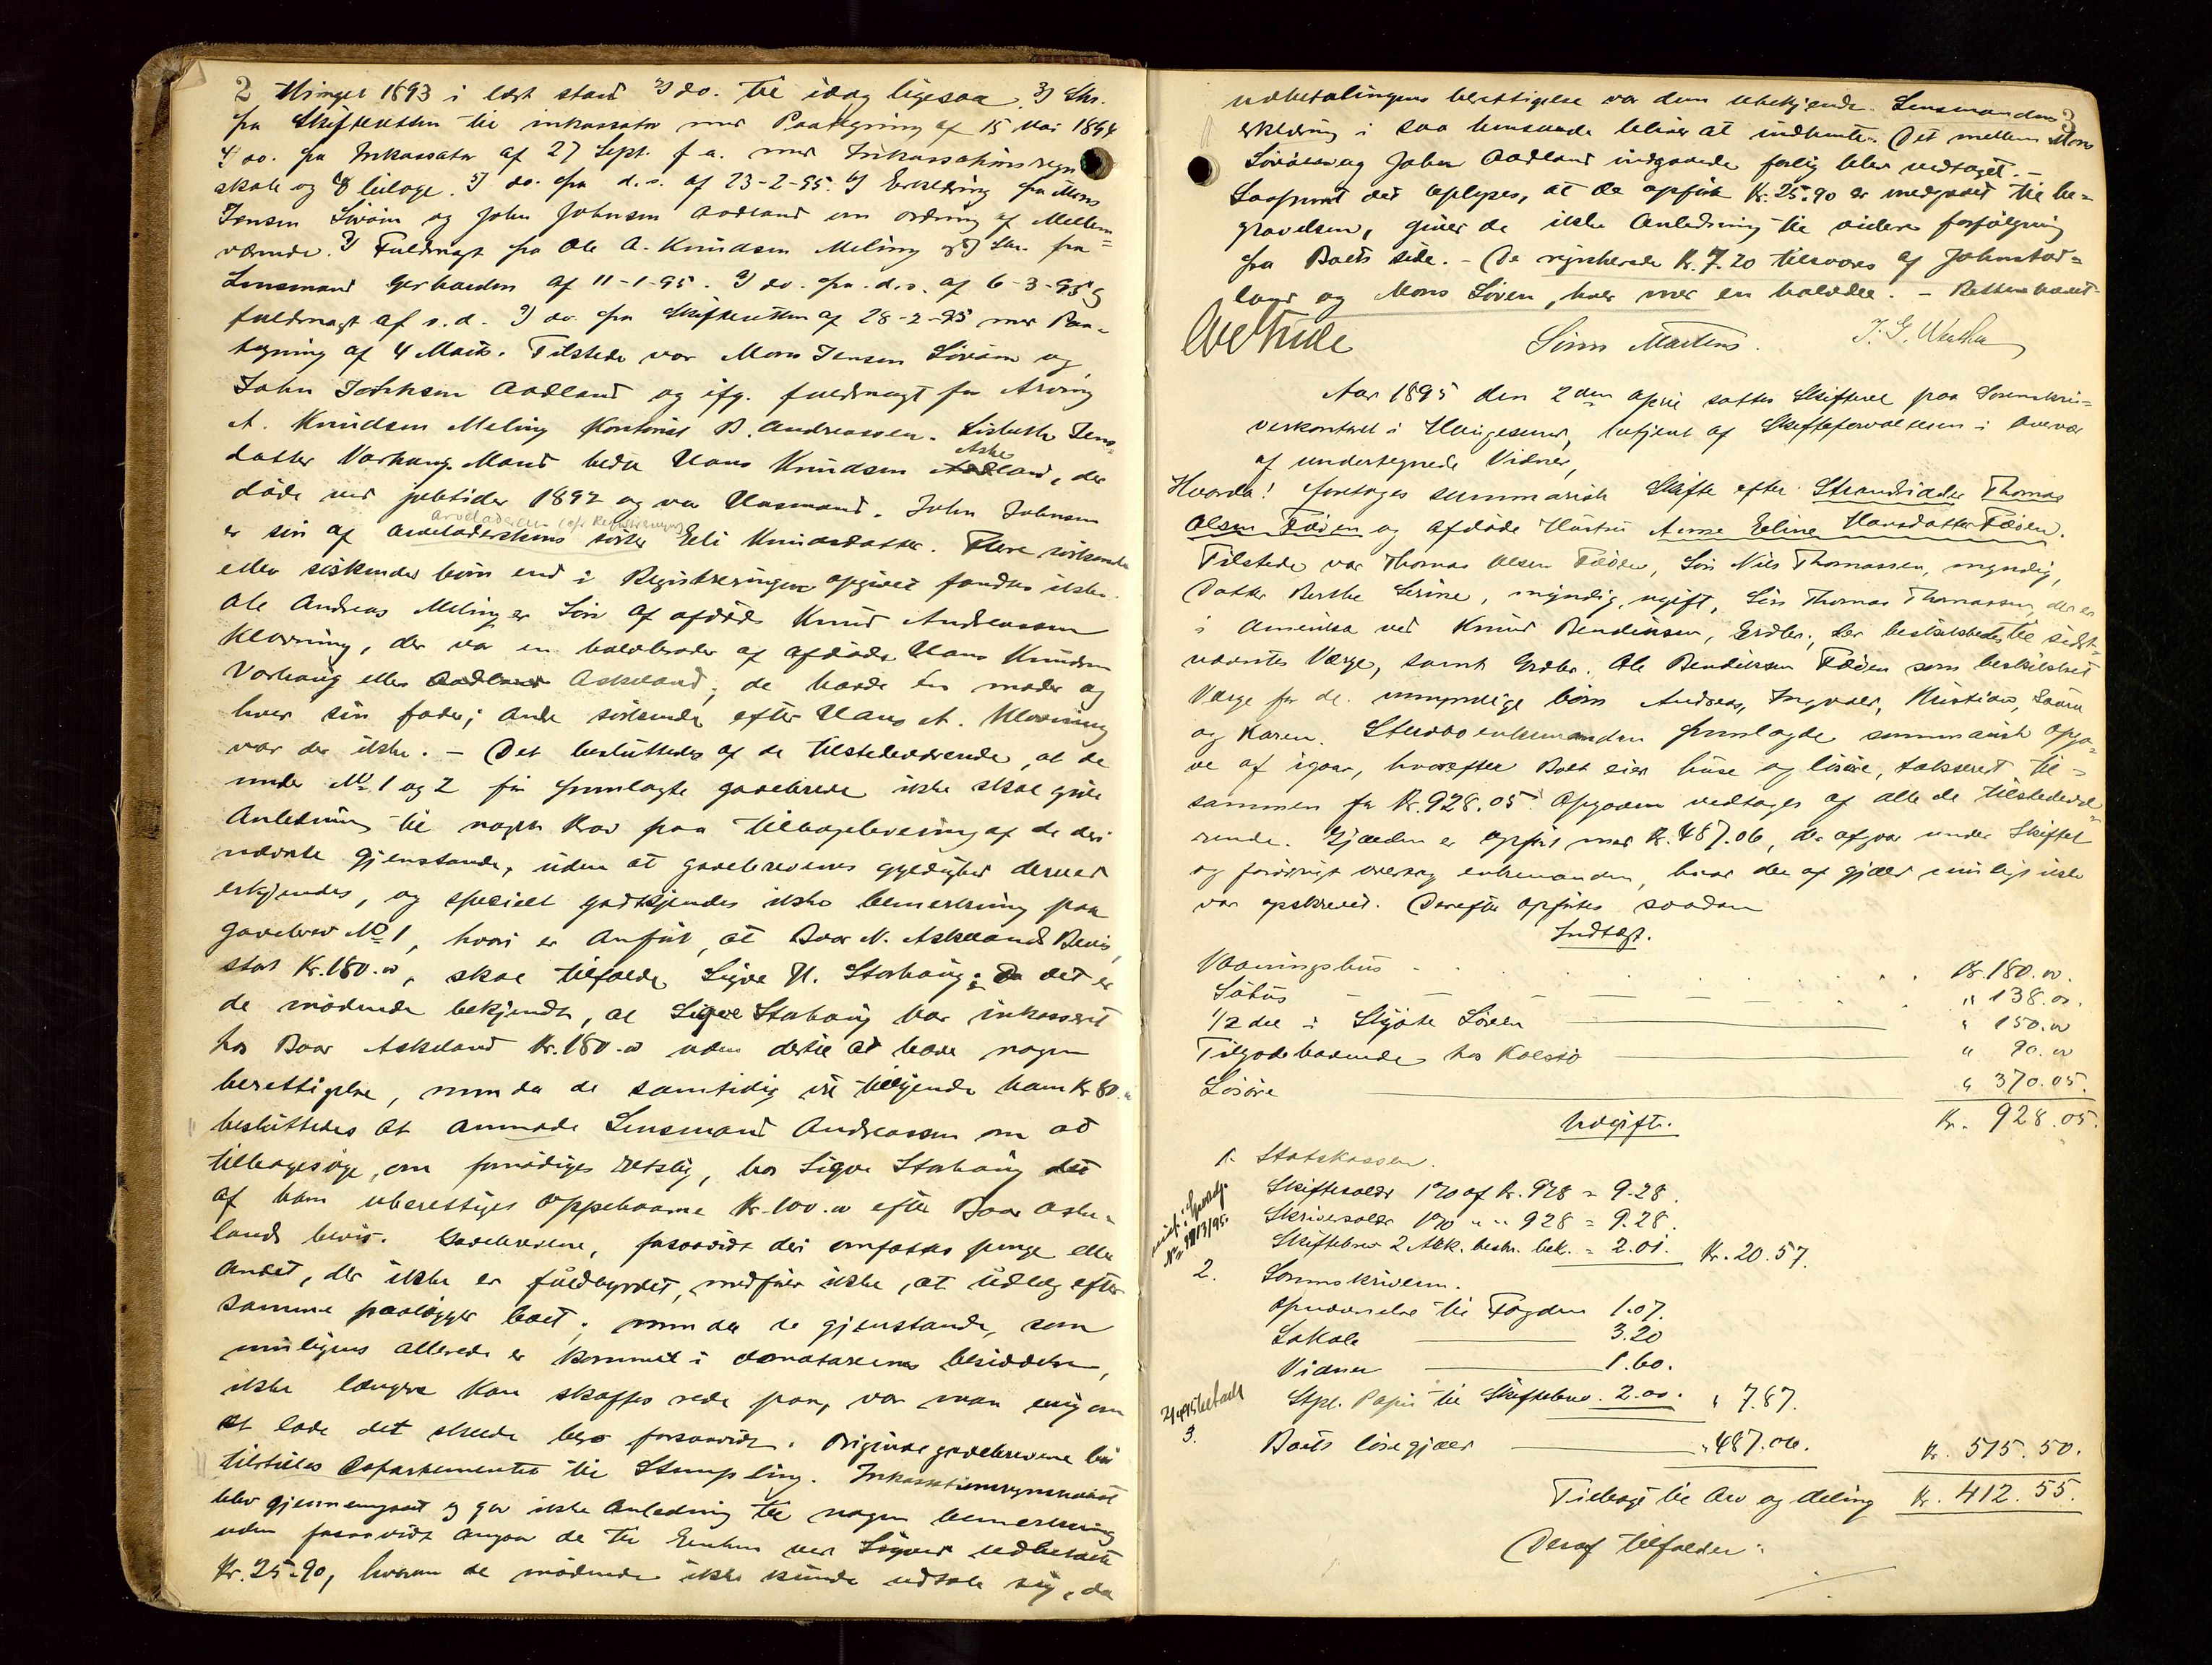 2 thinges 1893 i lagt stand 2) do. til idag ligesaa. 3) Skr.
fra Skifteretten til inkassator med Paategning af 15 Mai 1894
4) do. fra Inkassator af 27 Sept. f. a. med Inkassationsregn
skab og 8 bilage. 5) do. fra d. s. af 23-2-95. 6) Erklæring fra Mons
Jensen Liröim og John Johnsen Aadland om ordning af Mellem=
værende. 7) Fuldmagt fra Ole A. Knudsen Meling og 8) Skr. fra
Lensmand Gerhardsen af 11-1-95. 9) do. fra d. s. af 6-3-95 og
fuldmagt af s. d. 9) do fra Skifteretten af 28-2-95 med Paa-
tegning af 4 Marts. Tilstede var Mons Jensen Liröim og
John Johnsen Aadland og ifg. fuldmagt fra Arving
A. Knudsen Meling Kontorist B. Andreassen. Lisbeth Jens-
datter Varhaug Mand hedte Hans Knudsen Aske Aadland, der
döde ved juletider 1892 og var Husmand. John Johnsen
arveladeren (cfr Registreringen)
er sön af arveladerskens söster Eli Knudsdatter. Flere södskende
eller söskendes börn end i Registreringen opgivet fandtes ikke.
Ole Andreas Meling er Sön af afdöde Knud Andreassen
Klovning, der var en halvbroder af afdöde Hans Knudsen
Varhaug eller Aadland Askeland, de havde en moder og
hver sin fader; andre södskende efter Hans A. Klovning
var der ikke. – Det besluttedes af de tilstedeværende, at de
under No 1 og 2 för fremlagte gavebreve ikke skal give
Anledning til nogen Krav paa tilbagelevering af de deri
nævnte gjenstande, uden at gavebrevenes gyldighed derved
erkjendes, og specielt godkjendes ikke bemerkning paa
gavebrev No 1, hvori er Anfört, at Baar N. Askelands Bevis,
stort Kr. 180.00, skal tilfalde Sigve H. Storhaug; Da det er
de mödende bekjendt, at Sigve Storhaug har inkasseret
hos Baar Askeland Kr. 180.00 uden dertil at have nogen
berettigelse, men da de samtidig vil tilkjende ham Kr 80.00
besluttedes at anmode Lensmand Andreassen om at
tilbagesöge, om fornödiges retslig, hos Sigve Storhaug det
af ham uberettiget oppebaarne Kr. 100.00 efter Baar Aske-
lands bevis. Gavebrevene, forsaavidt der omfattes penge eller
Andet, der ikke er fuldbyrdet, medförer ikke, at udlæg efter
samme paalægges boet; men da de gjenstande, som
muligens allerede er kommet i donatarernes besiddelse,
ikke længere kan skaffes rede paa, var man enig om
at lade det skeede bero forsaavidt. Originalgavebrevene bör
tilstilles Departementet til Stempling. Inkassationsregnskabet
blev gjennemgaaet og gav ikke Anledning til nogen bemerkning
uden forsaavidt angaar de til Enken ved Sigve udbetalte
Kr. 25.90, hvorom de mödende ikke kunde udtale sig, da
3
udbetalingens berettigelse var dem ubekjendt. Lensmandens
erklæring i saa henseende bliver at indhente. Det mellem Mons
Liröim og John Aadland indgaaede forlig blev vedtaget. –
Saafremt det oplyses, at de opförte Kr. 25.90 er medgaaet til be=
gravelsen, giver de ikke Anledning til videre forfölgning
fra Boets side. – De registrerede Kr. 7.20 tilsvares af John Aad=
land og Mons Liröen, hver med en halvdel. – Retten hævet
Sören Martens. J. G.
Aar 1895 den 2den April sattes Skifteret paa Sorenskri=
verkontoret i Haugesund, betjent af Skifteforvalteren i Overvær
af undertegnede Vidner,
Hvorda! foretoges summarisk Skifte efter Strandsidder Thomas
Olsen Fæöen og afdöde Hustru Anne Eline Hansdatter Fæöen.
Tilstede var Thomas Olsen Fæöen, Sön Nils Thomassen, myndig,
Datter Berthe Serine, myndig, ugift, Sön Thomas Thomassen, der er
i Amerika ved Knud Bendiksen, Grdbr., der beskikkedes til sidst-
nævntes Værge, samt Grdbr. Ole Bendiksen Fæöen som beskikket
Værge for de umyndige börn Andreas, Ingvald, Kristian, Laura
og Karen. Stervboenkemanden fremlagde summarisk Opga-
ve af igaar, hvorefter Boet eier huse og lösöre, takseret til=
sammen for Kr. 928.05. Opgaven vedtages af alle de tilstedevæ=
rende. Gjælden er opfört med Kr. 487.06, der afgaar under Skiftet
og forövrigt overtog enkemanden, hvad der af gjæld muligt ikke
var opskrevet. Derefter opförtes saadan
Indtægt.
Vaaningshus . . . . . . Kr. 180.00.
Söhus – – – – – – " 138.00.
1/2 del i Sköite Liröen " 150.00
Tilgodehavende hos Kolstö " 90.00
Lösöre " 370.05.
Kr. 928.05.
Udgift.
1. Statskassen.
Skiftesalær 1% af Kr. 928 = 9.28.
Skriversalær 1% " " 928 = 9.28.
Skiftebrev 2 Ark. beskr. bek. = 2.01. Kr. 20.57.
2. Sorenskriveren.
Opnævnelse til Fogden 1.07.
Lokale 3.20
Vidner 1.60.
Stpl. Papir til Skiftebrev. 2.00. " 7.87.
3. Boets lösegjæld " 487.06. Kr. 515.50.
Tilbage til Arv og deling Kr. 412.55.
Deraf tilfalder: